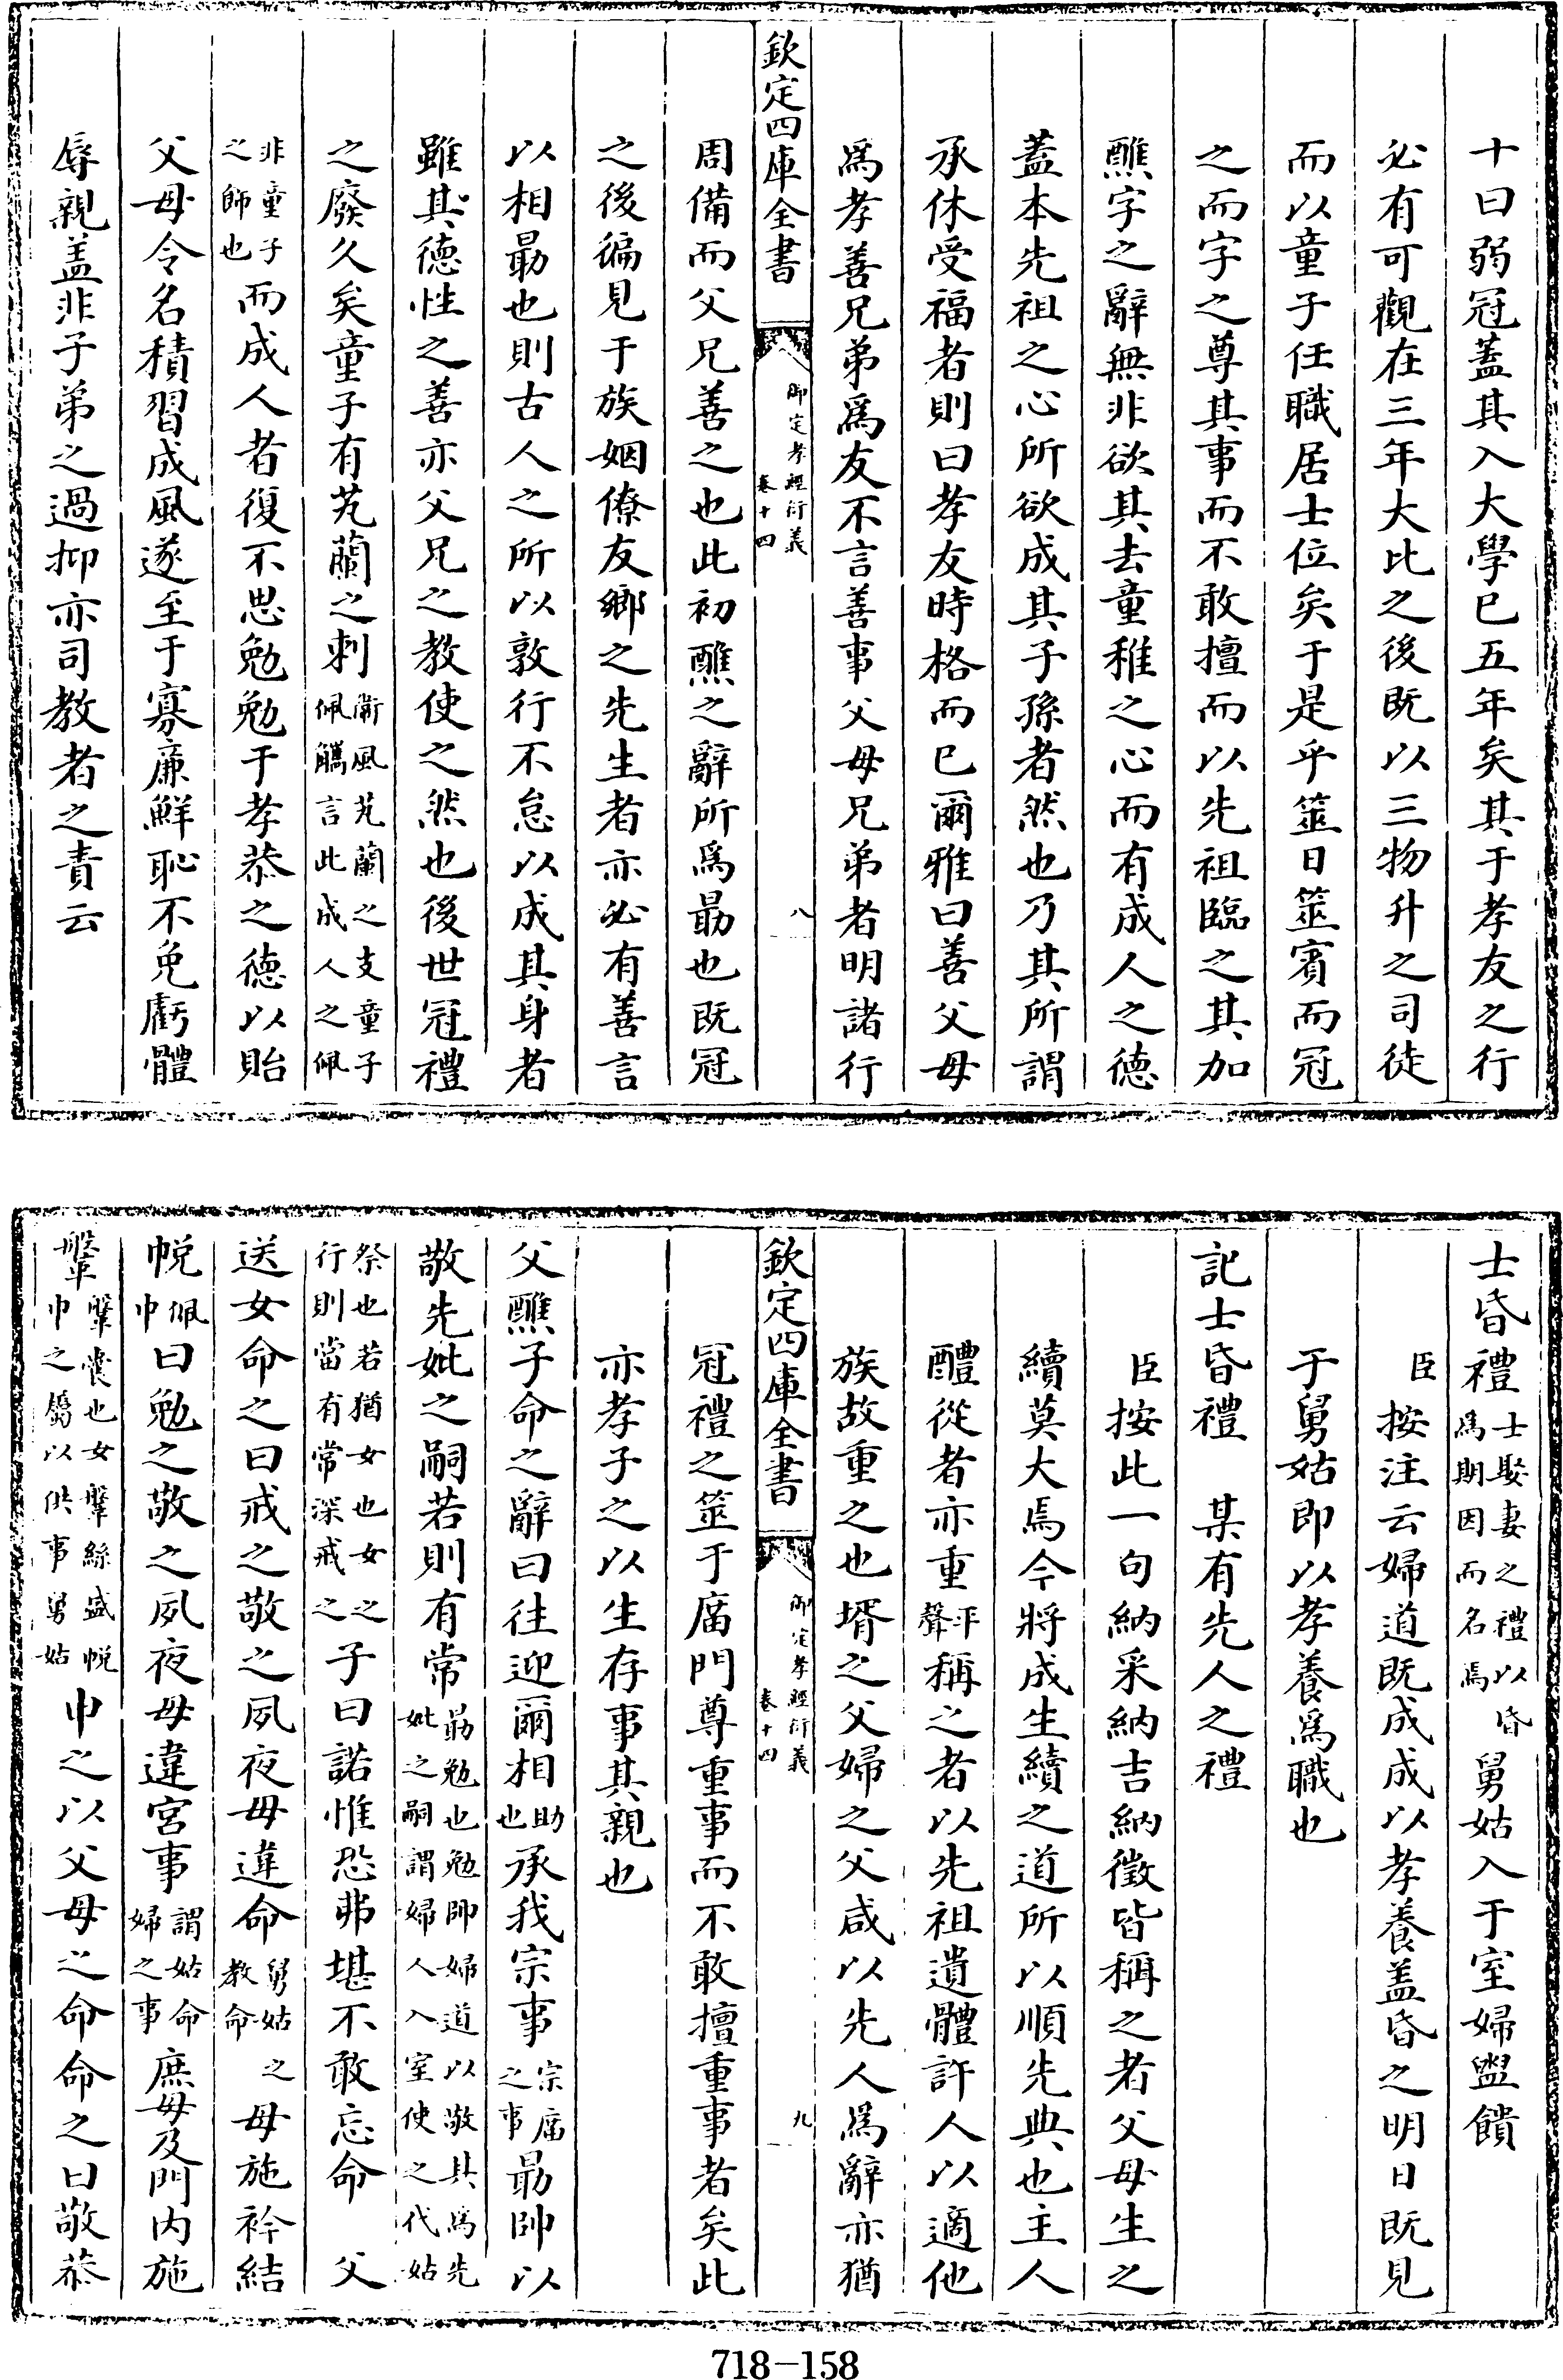 十曰弱冠蓋其入大學已五年矣其于孝友之行
必有可觀在三年大比之後既以三物升之司徒
而以童子任職居士位矣于是乎筮日筮賓而冠
之而字之尊其事而不敢擅而以先祖臨之其加
醮字之辭無非欲其去童稚之心而有成人之德
蓋本先祖之心所欲成其子孫者然也乃其所謂
承休受福者則曰孝友時格而已爾雅曰善父母
為孝善兄弟為友不言善事父母兄弟者明諸行
欽定四庫全書
御定孝經衍義
卷十四
八
周備而父兄善之也此初醮之辭所為勗也既冠
之後徧見于族姻僚友鄉之先生者亦必有善言
以相勗也則古人之所以敦行不怠以成其身者
雖其德性之善亦父兄之教使之然也後世冠禮
之廢久矣童子有艽蘭之刺衛風艽蘭之支童子佩觿言此成人之佩
非童子之師也而成人者復不思勉勉于孝恭之德以貽
父母令名積習成風遂至于寡廉鮮恥不免虧體
辱親盖非子弟之過抑亦司教者之責云
士昏禮士娶妻之禮以昏為期因而名焉舅姑入于室婦盥饋
臣按注云婦道既成成以孝養盖昏之明日既見
于舅姑即以孝養為職也
記士昏禮 某有先人之禮
臣按此一句納采納吉納徵皆稱之者父母生之
續莫大焉今將成生續之道所以順先典也主人
醴從者亦重平聲稱之者以先祖遺體許人以適他
族故重之也壻之父婦之父咸以先人為辭亦猶
欽定四庫全書
御定孝經衍義
卷十四
九
冠禮之筮于庿門尊重事而不敢擅重事者矣此
亦孝子之以生存事其親也
父醮子命之辭曰往迎爾相助也承我宗事宗庿之事勗帥以
敬先妣之嗣若則有常勗勉也勉帥婦道以敬其為先妣之嗣謂婦人入室使之代姑
祭也若猶女也女之行則當有常深戒之子曰諾惟恐弗堪不敢忘命 父
送女命之曰戒之敬之夙夜毋違命舅姑之教命母施衿結
帨佩巾曰勉之敬之夙夜毋違宮事謂姑命婦之事庶母及門内施
鞶鞶囊也女鞶絲盛帨巾之屬以供事舅姑申之以父母之命命之曰敬恭
718-158